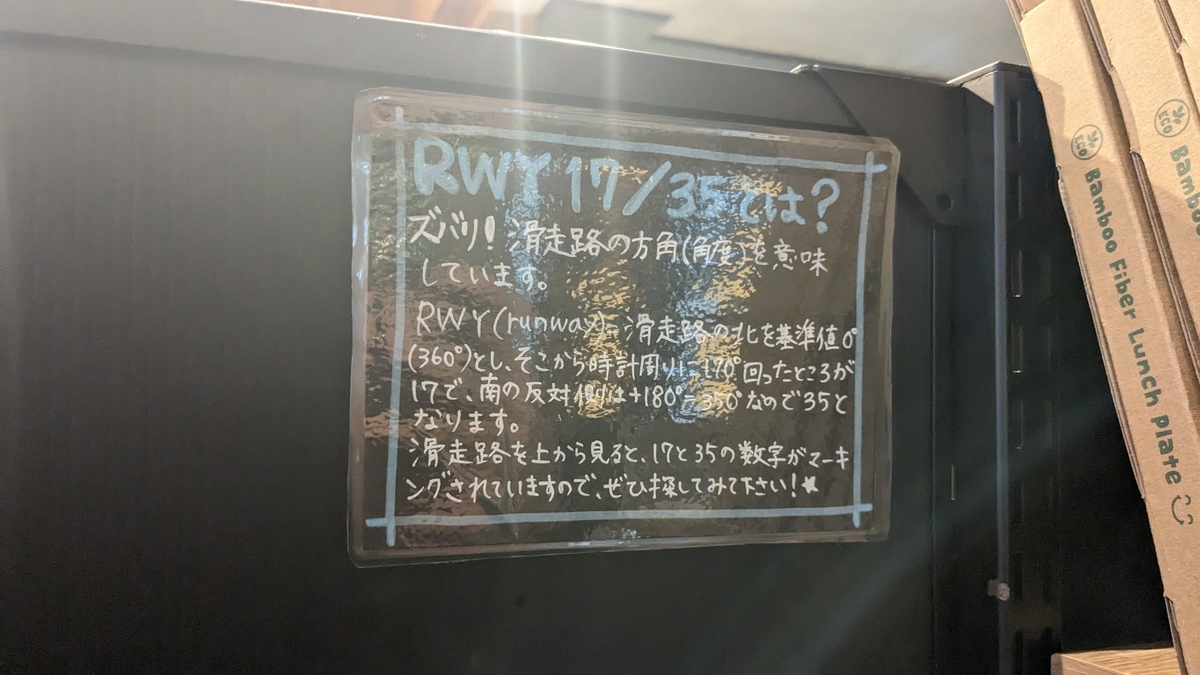 RWY 17/35とは?
ズバリ!滑走路の方角(角度)を意味
しています。
RWY(runway)=滑走路の北を基準値0°
(360°)とし、そこから時計周りに170°回ったところが
17で、南の反対側は+180°=350°なので35と
なります。
滑走路を上から見ると、17と35の数字がマーキ
ングされていますので、ぜひ探してみて下さい!★
ECO Bamboo Fiber Lunch Plate
ECO